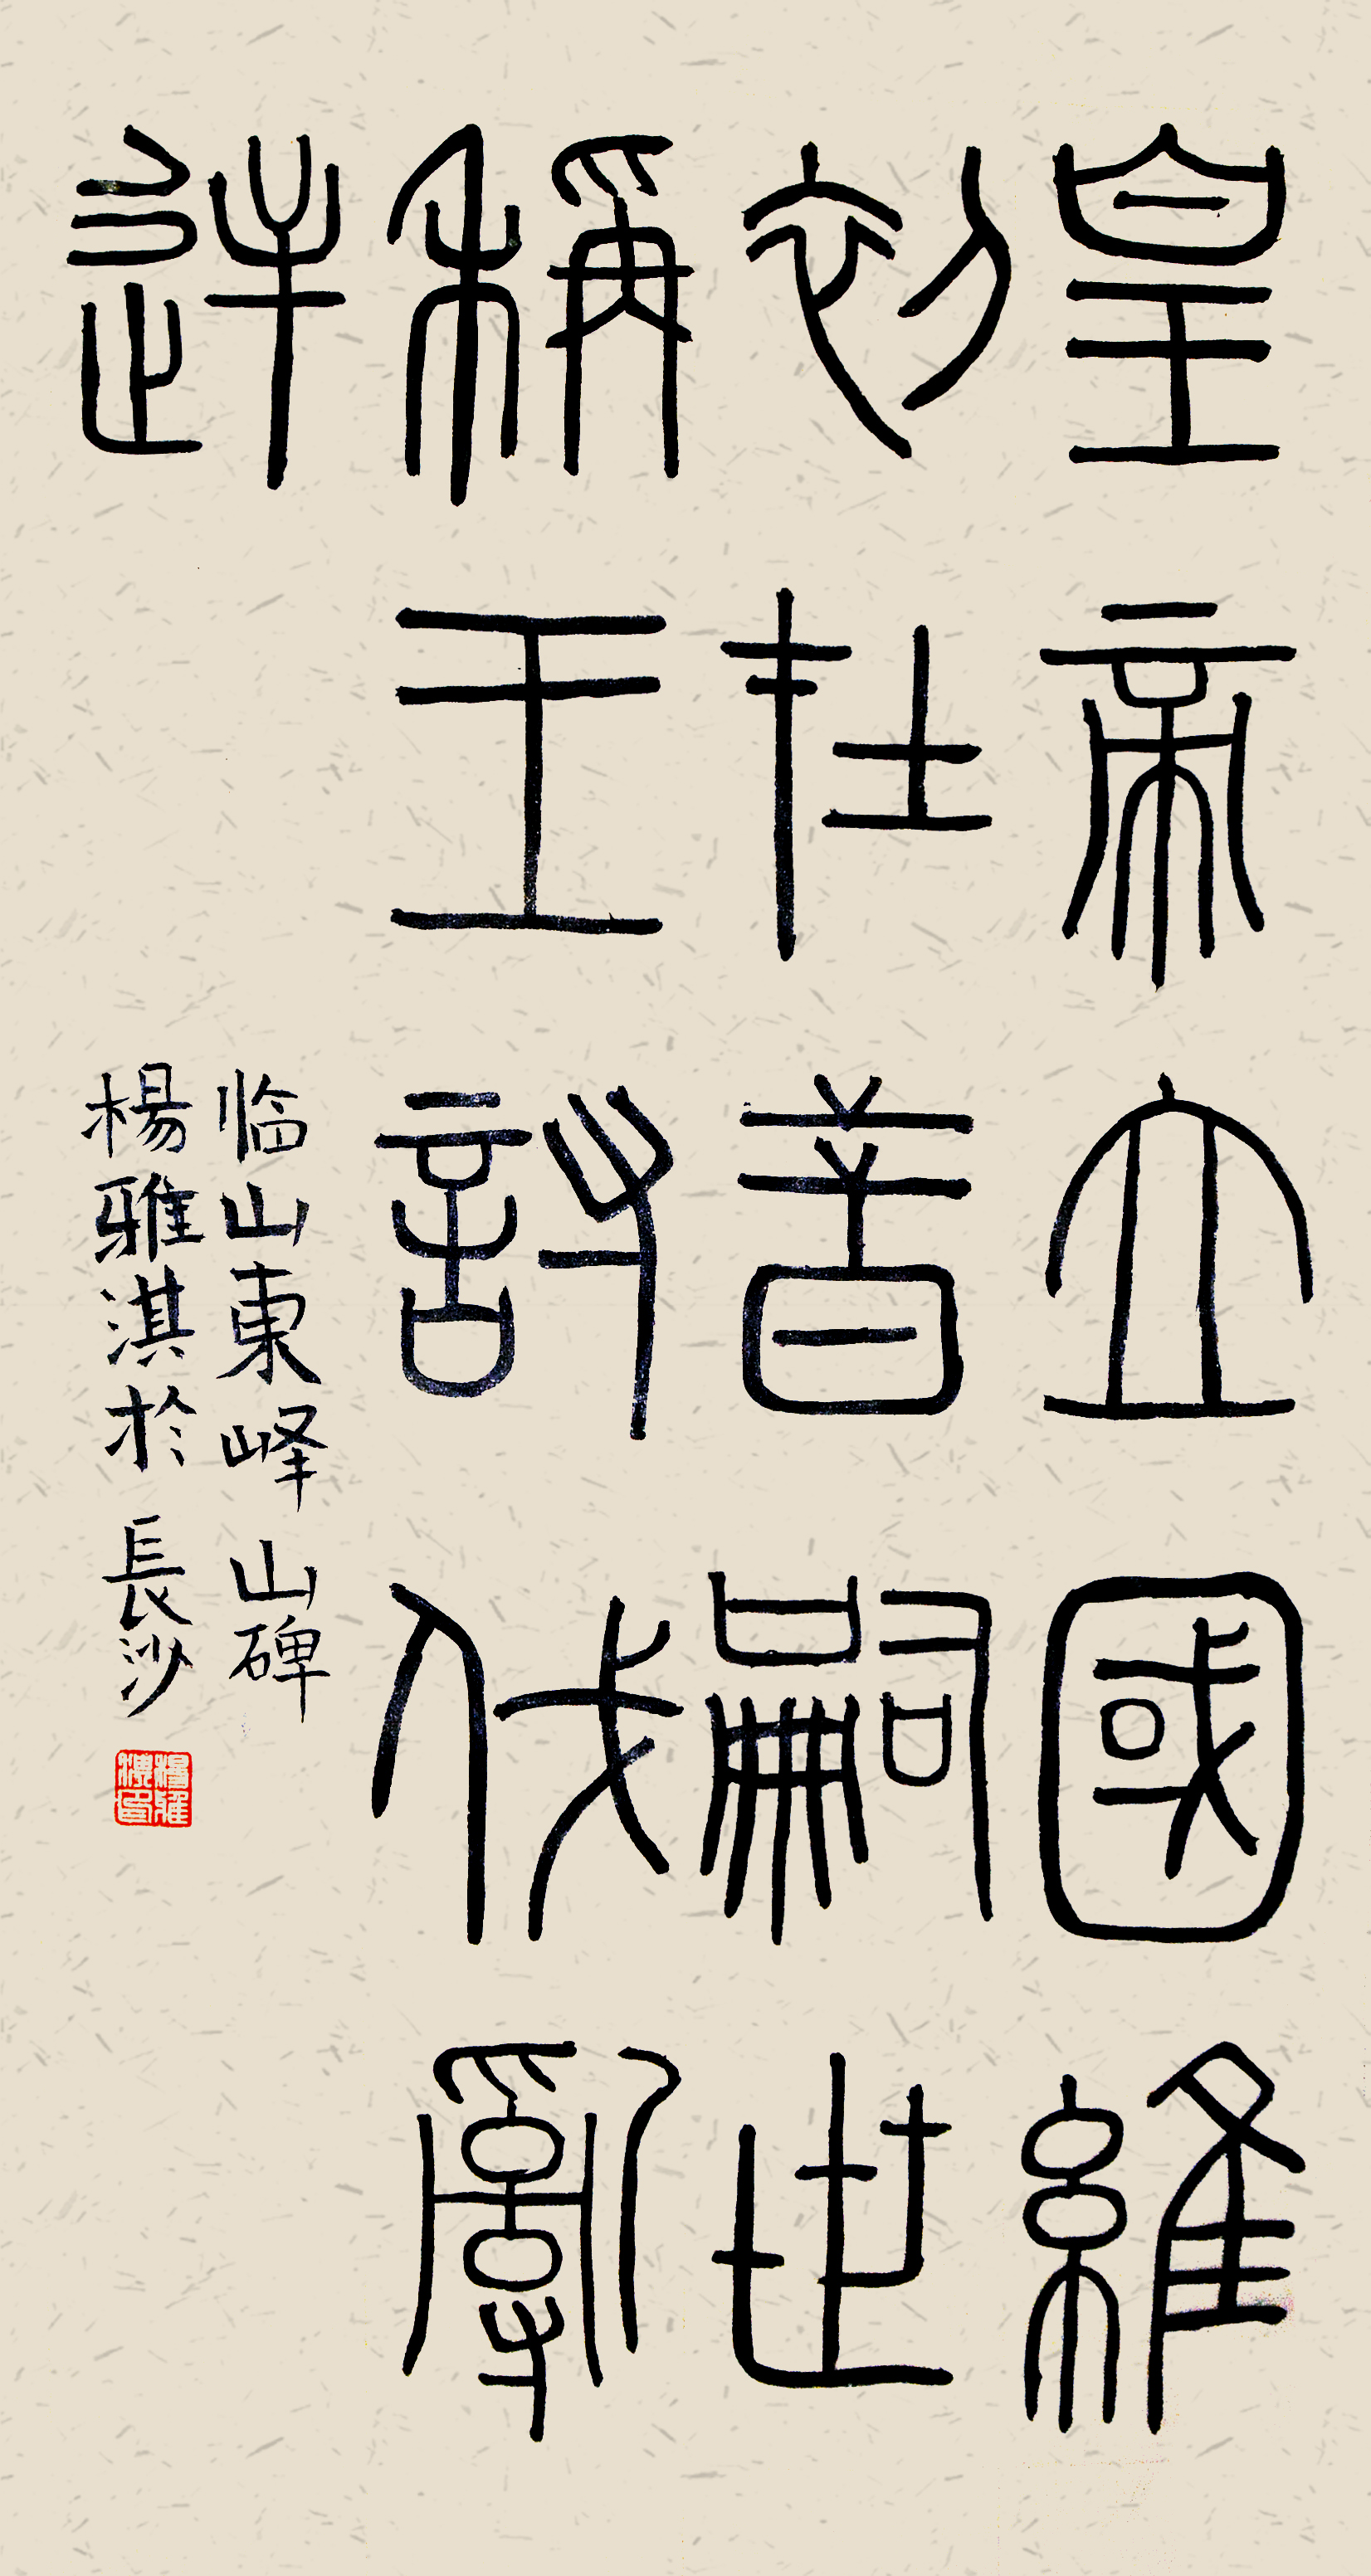 皇帝立國維
初在昔嗣世
稱王討伐亂
逆
临山東峄山碑
楊雅淇於長沙
楊雅淇印